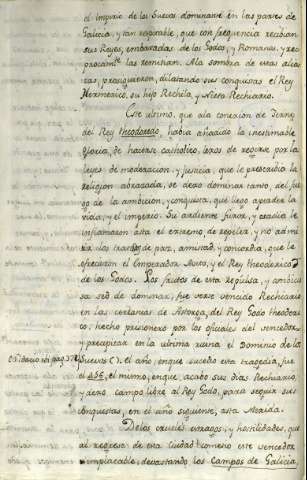 el Imperio de los Suevos dominante en las partes de
Galicia, y tan respetable, que con frequencia recibian
sus Reyes, embaxadas de los Godos, y Romanos, y reciprocamte las remitian. A la sombra de estas alianzas, prosiguieron, dilatando sus conquistas el Rey
Hermerico, su hijo Rechila, y Nieto Rechiario.
Este ultimo, que a la conexion de Yerno
del Rey Theodoredo, havia añadido la inestimable
gloria, de hacerse catholico, lexos de regirse por las
leyes de moderacion, y justicia, que le prescribia la
religion abrazada, se dexo dominar tanto del fuego de la ambicion, y conquista, que llego a perder la
vida, y el imperio. Su ardiente furor, y codicia le
inflamaron asta el extremo de repeler, y no admitir los tratados de paz, amistad, y concordia, que le
ofrecieron el Emperador Avito, y el Rey Theodorico
de los Godos. Los frutos de esta repulsa, y ambiciosa sed de dominar, fue verse vencido Rechiario
en las cercanias de Astorga, del Rey Godo Theodorico, hecho prisionero por los oficiales del vencedor,
y precipitar en la ultima ruina el Dominio de los
Suevos (). el año, enque sucedio esta tragedia, fue
el 456, el mismo, enque, acabo sus dias Rechiario,
y dexo campo libre al Rey Godo, para seguir sus
conquistas, en el año siguiente, asta Merida.
De los crueles estragos, y hostilidades, que
al regreso de esta Ciudad cometio este vencedor
implacable, devastando los Campos de Galicia,